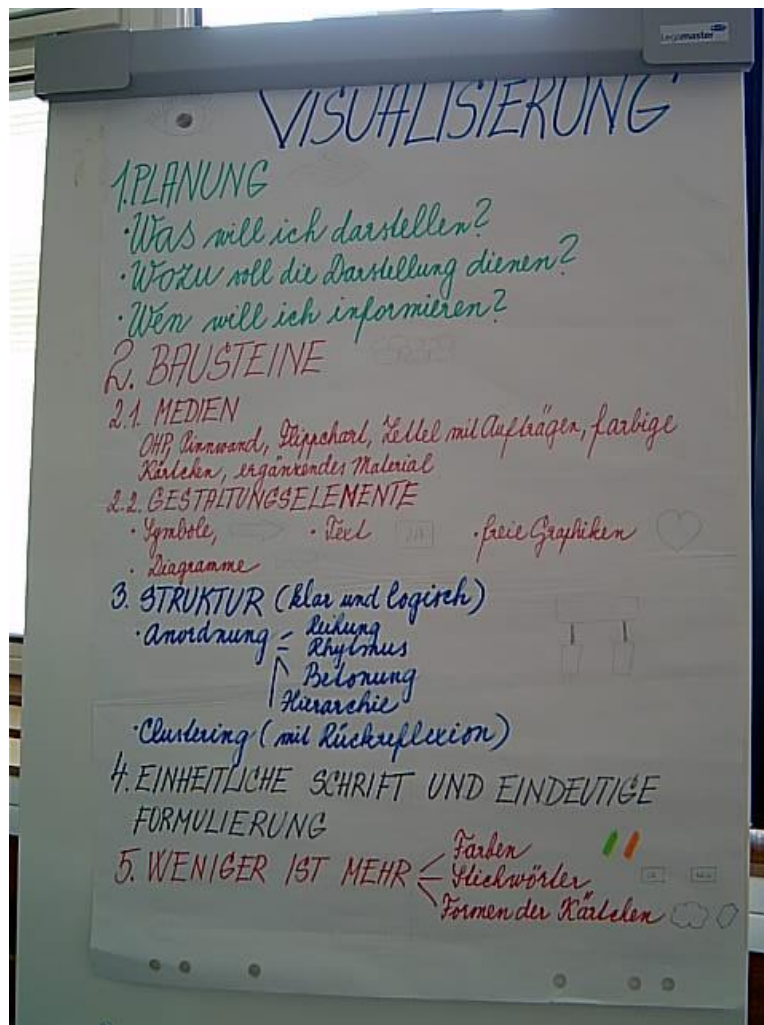 Legamaster
VISUALISIERUNG
1. PLANUNG
• Was will ich darstellen?
• Wozu soll die Darstellung dienen?
• Wen will ich informieren?
2. BAUSTEINE
2.1. MEDIEN
OHP, Pinnwand, Flippchart, Zettel mit Aufträgen, farbige
Kärtchen, ergänzendes Material
2.2. GESTALTUNGSELEMENTE
• Symbole, • Text • freie Graphiken
• Diagramme
3. STRUKTUR (klar und logisch)
• Anordnung - Reihung
- Rhytmus
Betonung
Hierarchie
• Clustering (mit Rückreflexion)
4. EINHEITLICHE SCHRIFT UND EINDEUTIGE
FORMULIERUNG
5. WENIGER IST MEHR - Farben
- Stichwörter
Formen der Kärtchen